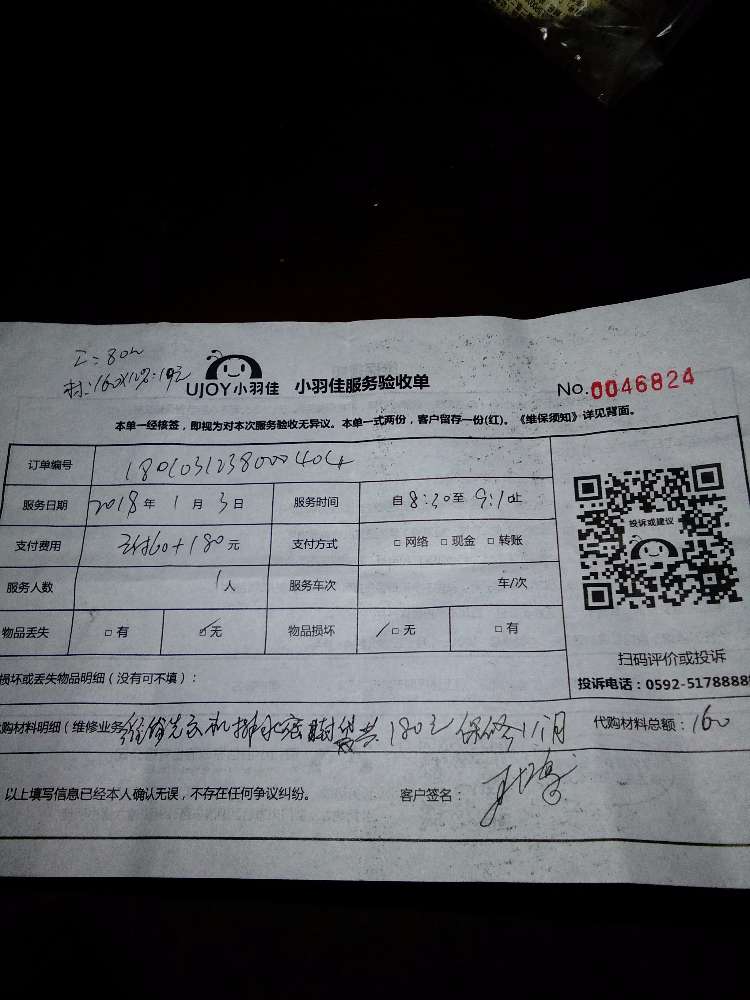 工:80元
材:160×10%=16元
UJOY小羽佳 小羽佳服务验收单
No.0046824
本单一经核签，即视为对本次服务验收无异议。本单一式两份，客户留存一份(红)。《维保须知》详见背面。
订单编号 1801031238000404
服务日期 2018年 1月 3日 服务时间 自8:30至9:10止
支付费用 60+180元 支付方式 □网络 □现金 □转账
服务人数 1人 服务车次 车/次
物品丢失 □有 ☑无 物品损坏 □无 □有
投诉或建议
扫码评价或投诉
投诉电话：0592-5178888
损坏或丢失物品明细（没有可不填）：
购材料明细（维修业务 维修洗衣机排水 共180元 保修1个月 代购材料总额：160
以上填写信息已经本人确认无误，不存在任何争议纠纷。 客户签名：